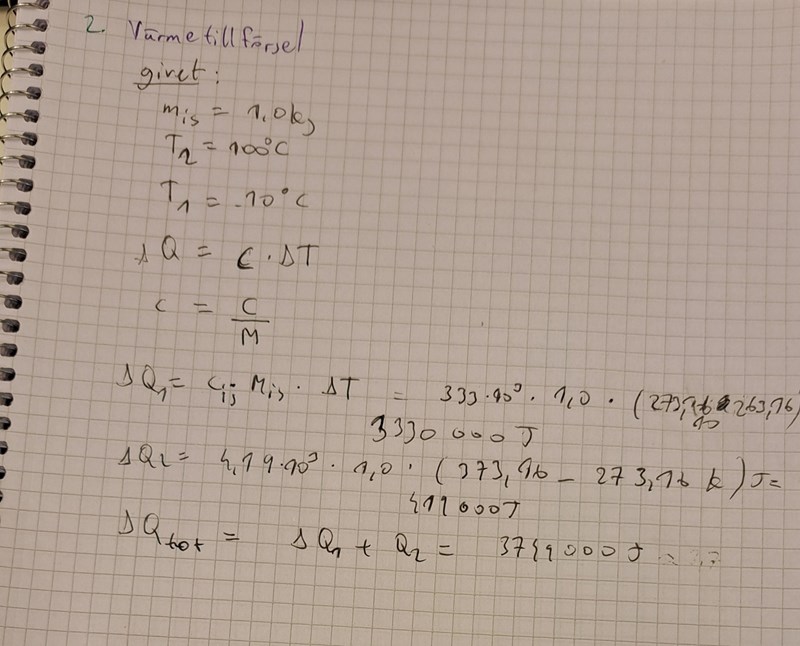 2. Värmetillförsel
givet:
m_is = 1,0 kg
T_2 = 100°C
T_1 = -10°C
ΔQ = C · ΔT
c = C/M
ΔQ_1 = c_is · M_is · ΔT = 333·10³ · 1,0 · (273,16 - 263,16)
10
3330 000 J
ΔQ_2 = 4,19·10³ · 1,0 · (373,16 - 273,16 k) J =
419 000 J
ΔQ_tot = ΔQ_1 + Q_2 = 3749 000 J